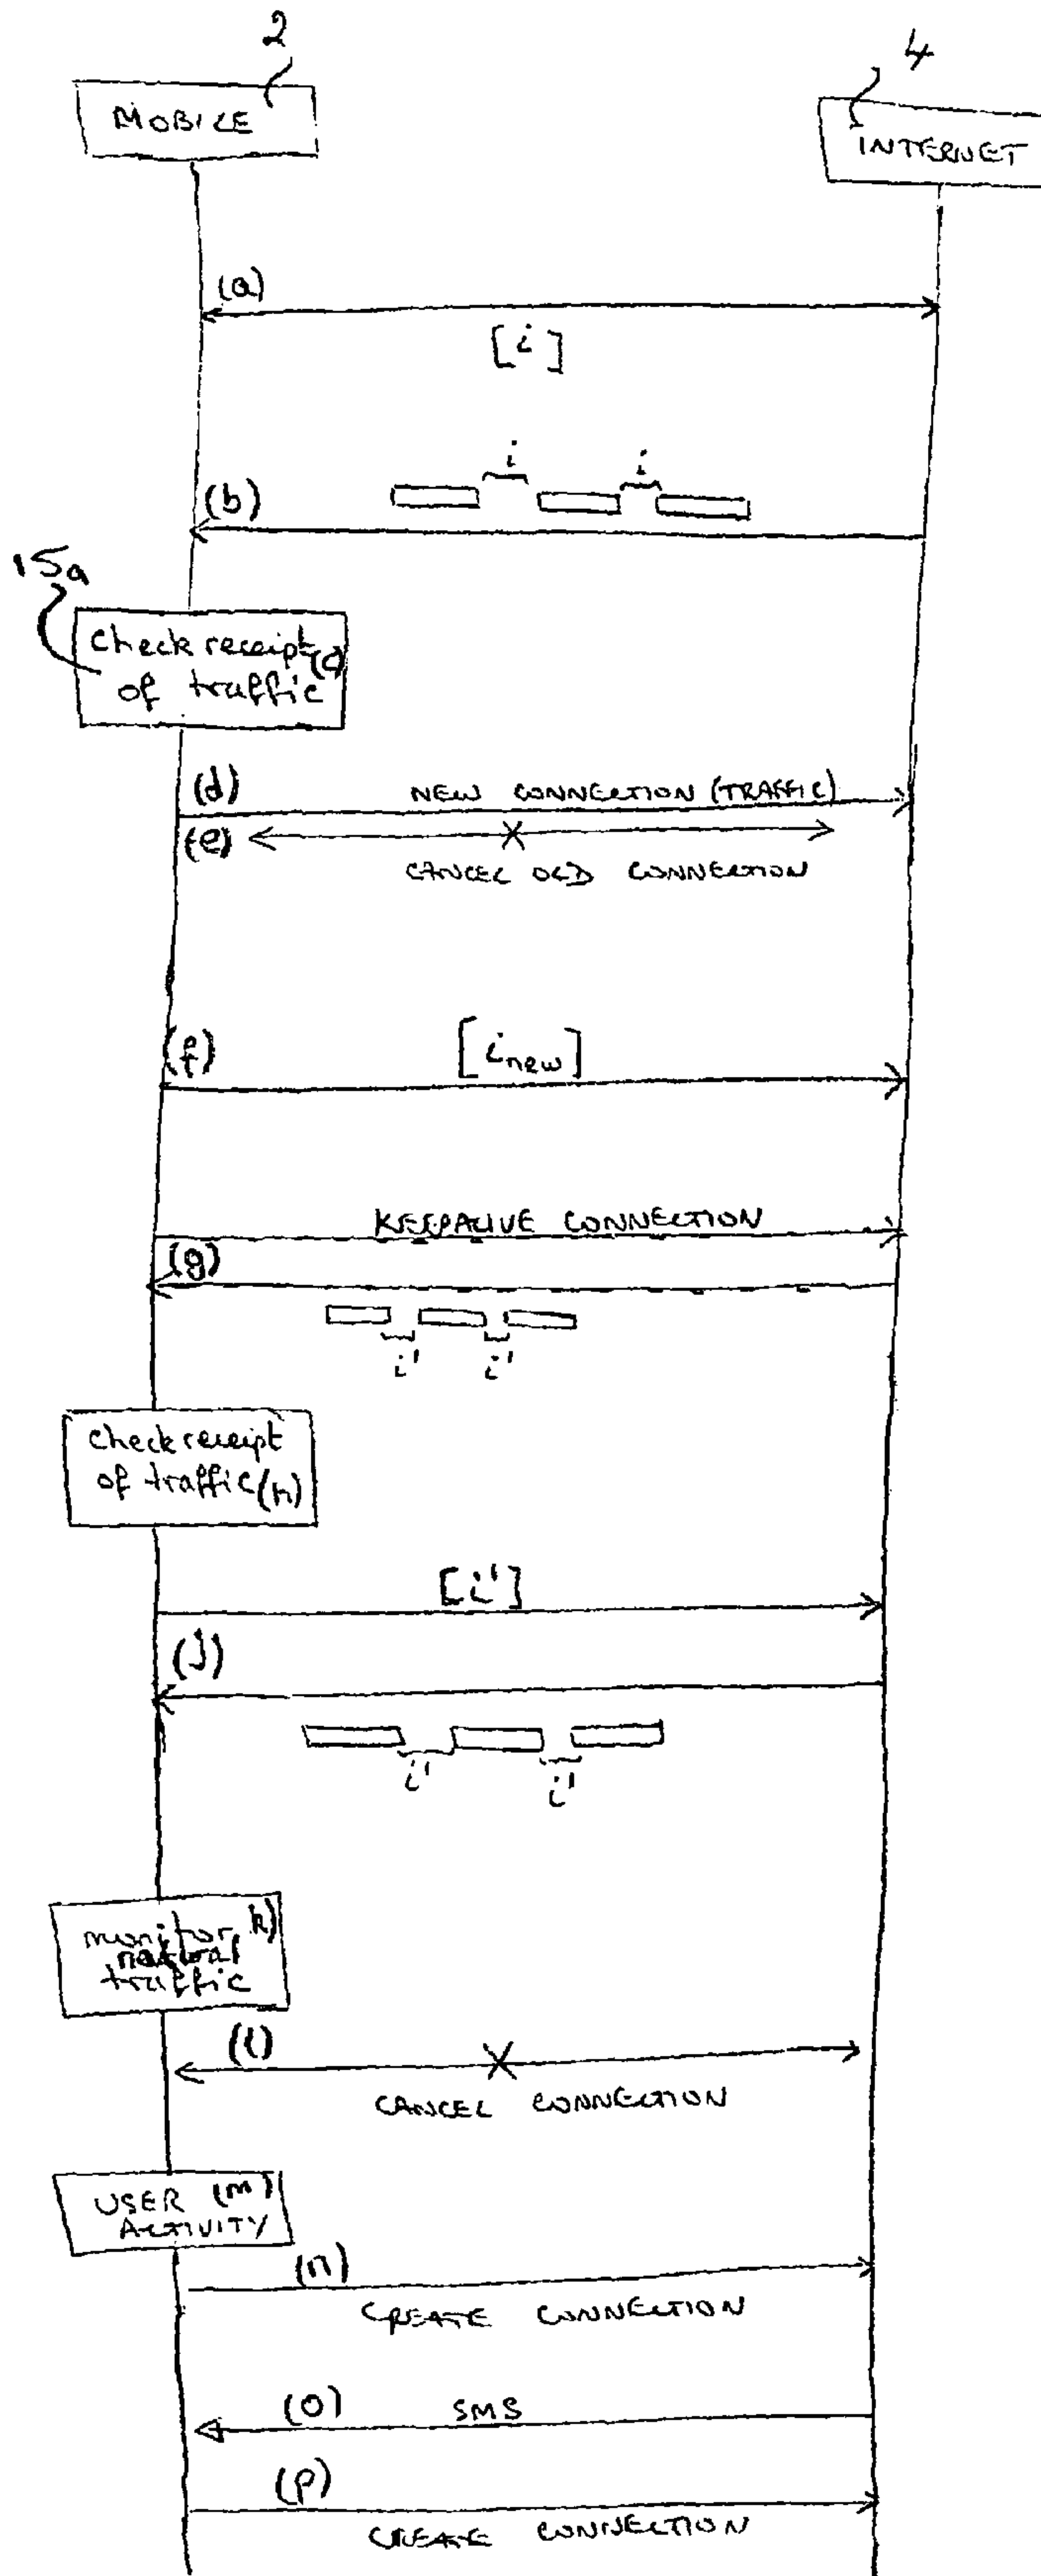 2
4
MOBILE
INTERNET
(a)
[i]
i i
(b)
15a
Check receipt (c)
of traffic
(d) NEW CONNECTION (TRAFFIC)
(e)
CANCEL OLD CONNECTION
(f) [i new]
KEEPALIVE CONNECTION
(g)
i' i'
Check receipt
of traffic (h)
[i']
(j)
i' i'
monitor k)
natural
traffic
(l)
CANCEL CONNECTION
USER (m)
ACTIVITY
(n)
CREATE CONNECTION
(o) SMS
(p)
CREATE CONNECTION